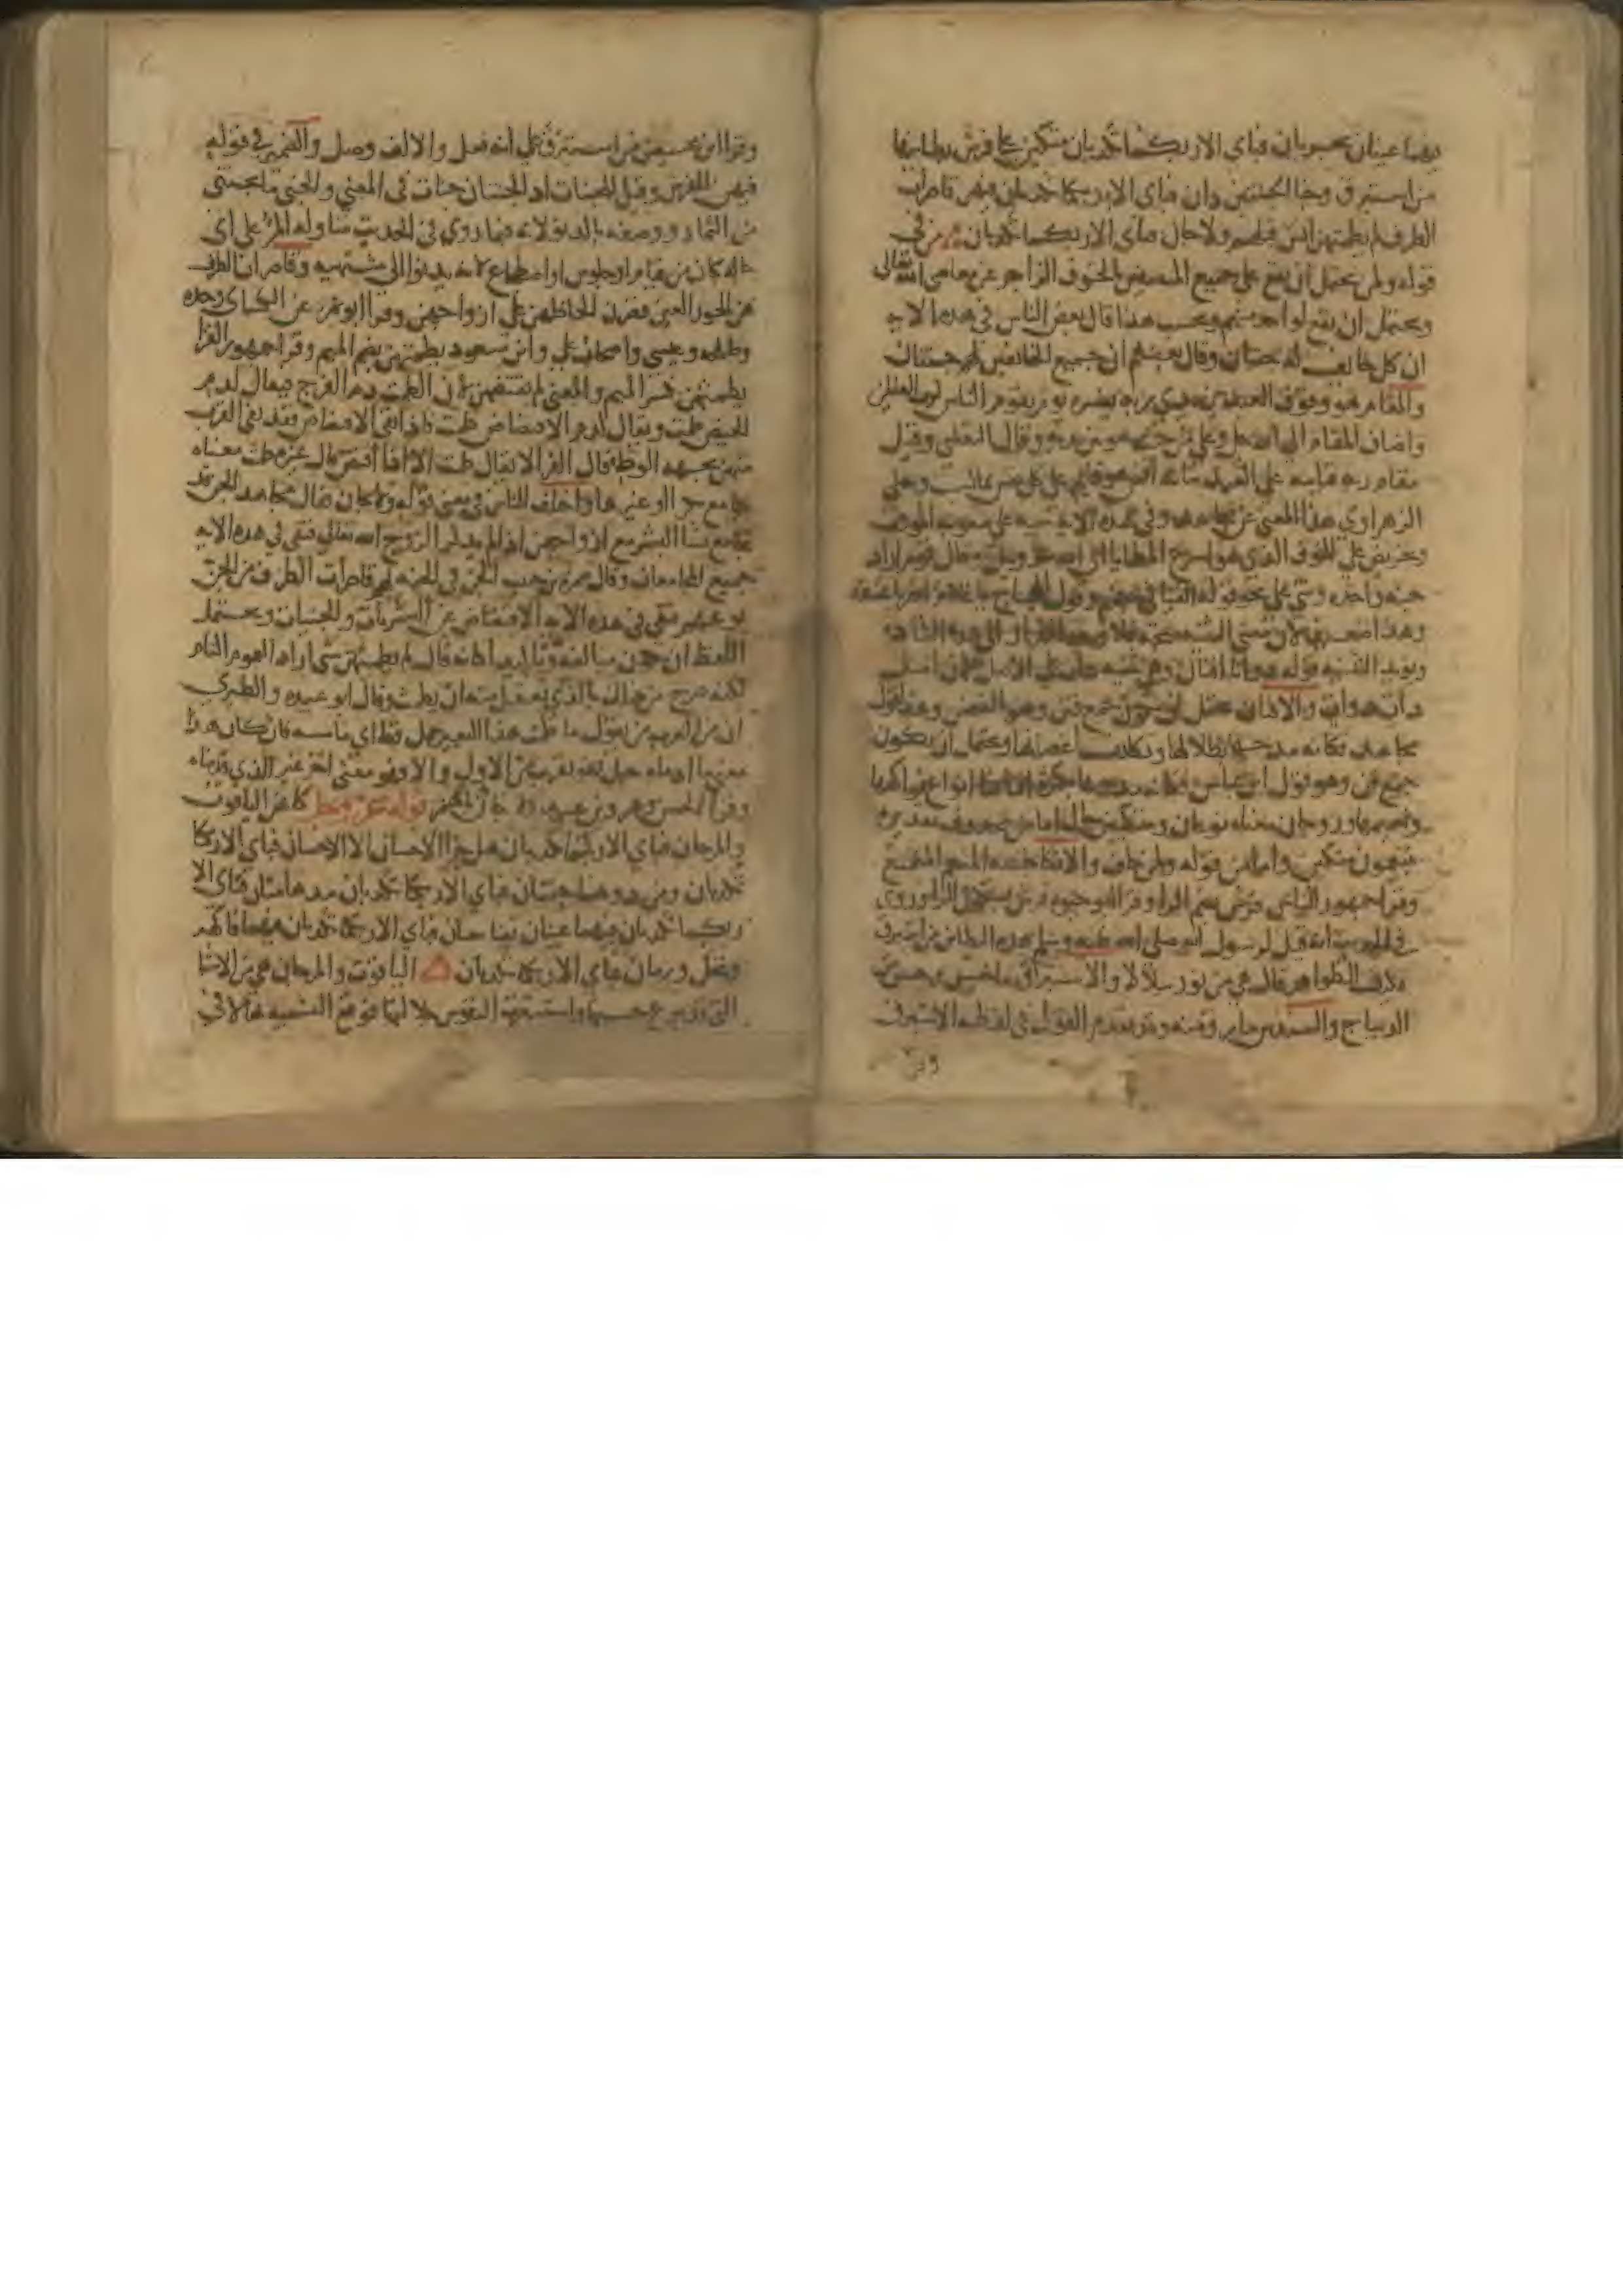 فيهما عينان تجريان فباي الا ربكما تكذبان متكئين على فرش بطاينها
من استبرق وجنا الجنتين دان فباي الا ربكما تكذبان فيهن قاصرات
الطرف لم يطمثهن انس قبلهم ولا جان فباي الا ربكما تكذبان من في
قوله ولمن يحتمل ان يقع على جميع المتصفين بالخوف الزاجر عن معاصي الله تعالى
ويحتمل ان يقع لواحد منهم وبحسب هذا قال بعض الناس في هذه الاية
ان كل خايف له جنتان وقال بعضهم ان جميع الخائفين لهم جنتان
والمقام هو وقوف العبد بين يدي ربه يفسره يوم يقوم الناس لرب العالمين
واضاف المقام الى الله وقال الثعلبي وقيل
مقام ربه قيامه على العبد
الزهراوي هذا المعنى عن مجاهد وفي هذه الاية
وتحريض على الخوف الذي هو اسرع المطايا الى الله عز وجل وقال قوم اراد
جنة واحدة وثنى على نحو قوله القيا في جهنم وقول الحجاج يا غلام اضربا عنقه
وهذا ضعيف لان معنى التثنية
ذواتا افنان
ذات والافنان يحتمل ان تكون جمع فنن وهو الغصن وهذا قول
مجاهد فكانه مدحها بظلالها وتكاثف اغصانها ويحتمل ان يكون
جمع فن وهو قول ابن عباس فكانه مدحها بكثرة انواع فواكهها
ونعيمها وزوجان معناه نوعان ومتكئين حال
يتنعمون متكئين واما من قوله ولمن خاف والاتكا جلسة المتنعم المتمتع
وقرا جمهور الناس فرش بضم الرا وقرا ابو حيوة فرش بسكون الرا وروي
في الحديث انه قيل لرسول الله صلى الله عليه وسلم هذه البطاين من استبرق
فكيف الظواهر قال هي من نور يتلالا والاستبرق ما خشن وحسن من
الديباج والسندس ما رق منه وقد تقدم القول في لفظة الاستبرق
وقرا
وقرا ابن محيصن من استبرق على انه فعل والالف وصل والضمير في قوله
فيهن للفرش وقيل للجنات اذ الجنتان جنات في المعنى والجنى ما يجتنى
من الثمار ووصفه بالدنو لانه فيما روي في الحديث يتناوله المرء على اي
حالة كان من قيام او جلوس او اضطجاع لانه يدنوا الى مشتهيه وقاصرات الطرف
هن الحور العين قصرن الحاظهن على ازواجهن وقرا ابو عمرو عن الكسائي وحده
وطلحة وعيسى واصحاب علي وابن مسعود يطمثهن بضم الميم وقرا جمهور القرا
يطمثهن بكسر الميم والمعنى لم يفتضهن لان الطمث دم الفرج فيقال لدم
الحيض طمث ويقال لدم الافتضاض طمث فاذا نفى الافتضاض فقد نفى القرب
منهن بجهة الوطء قال الفرا لا يقال طمث الا اذا افتض قال غيره طمث معناه
جامع بكرا او غيرها واختلف الناس في معنى قوله ولا جان فقال مجاهد الجن قد
تجامع نسا البشر مع ازواجهن اذا لم يذكر الزوج الله تعالى فنفى في هذه الاية
جميع المجامعات وقال ضمرة بن حبيب الجن في الجنة لهم قاصرات الطرف من الجن
نوعهم فنفى في هذه الاية الافتضاض عن البشريات والجنيات ويحتمل
اللفظ ان يكون مبالغة وتاكيدا كانه قال لم يطمثهن شي اراد العموم التام
لكنه صرح من ذلك بالذي يعقل منه ان يطمث وقال ابو عبيدة والطبري
ان من العرب من يقول ما طمث هذا البعير حبل قط اي ما مسه فان كان هذا
معنى ما ادماه حبل فهو يقرب من الاول والا فهو معنى اخر غير الذي قدمناه
وقرا الحسن وعمرو بن عبيد ولا جان بالهمز قوله عز وجل كانهن الياقوت
والمرجان فباي الا ربكما تكذبان هل جزا الاحسان الا الاحسان فباي الا ربكما
تكذبان ومن دونهما جنتان فباي الا ربكما تكذبان مدهامتان فباي الا
ربكما تكذبان فيهما عينان نضاختان فباي الا ربكما تكذبان فيهما فاكهة
ونخل ورمان فباي الا ربكما تكذبان الياقوت والمرجان هي من الاشيا
التي قد برع حسنها واستشعرت النفوس جلالتها فوقع التشبيه بها لا في